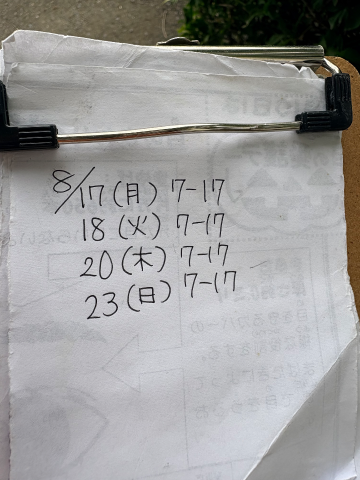 8/17(月) 7-17
18(火) 7-17
20(木) 7-17
23(日) 7-17